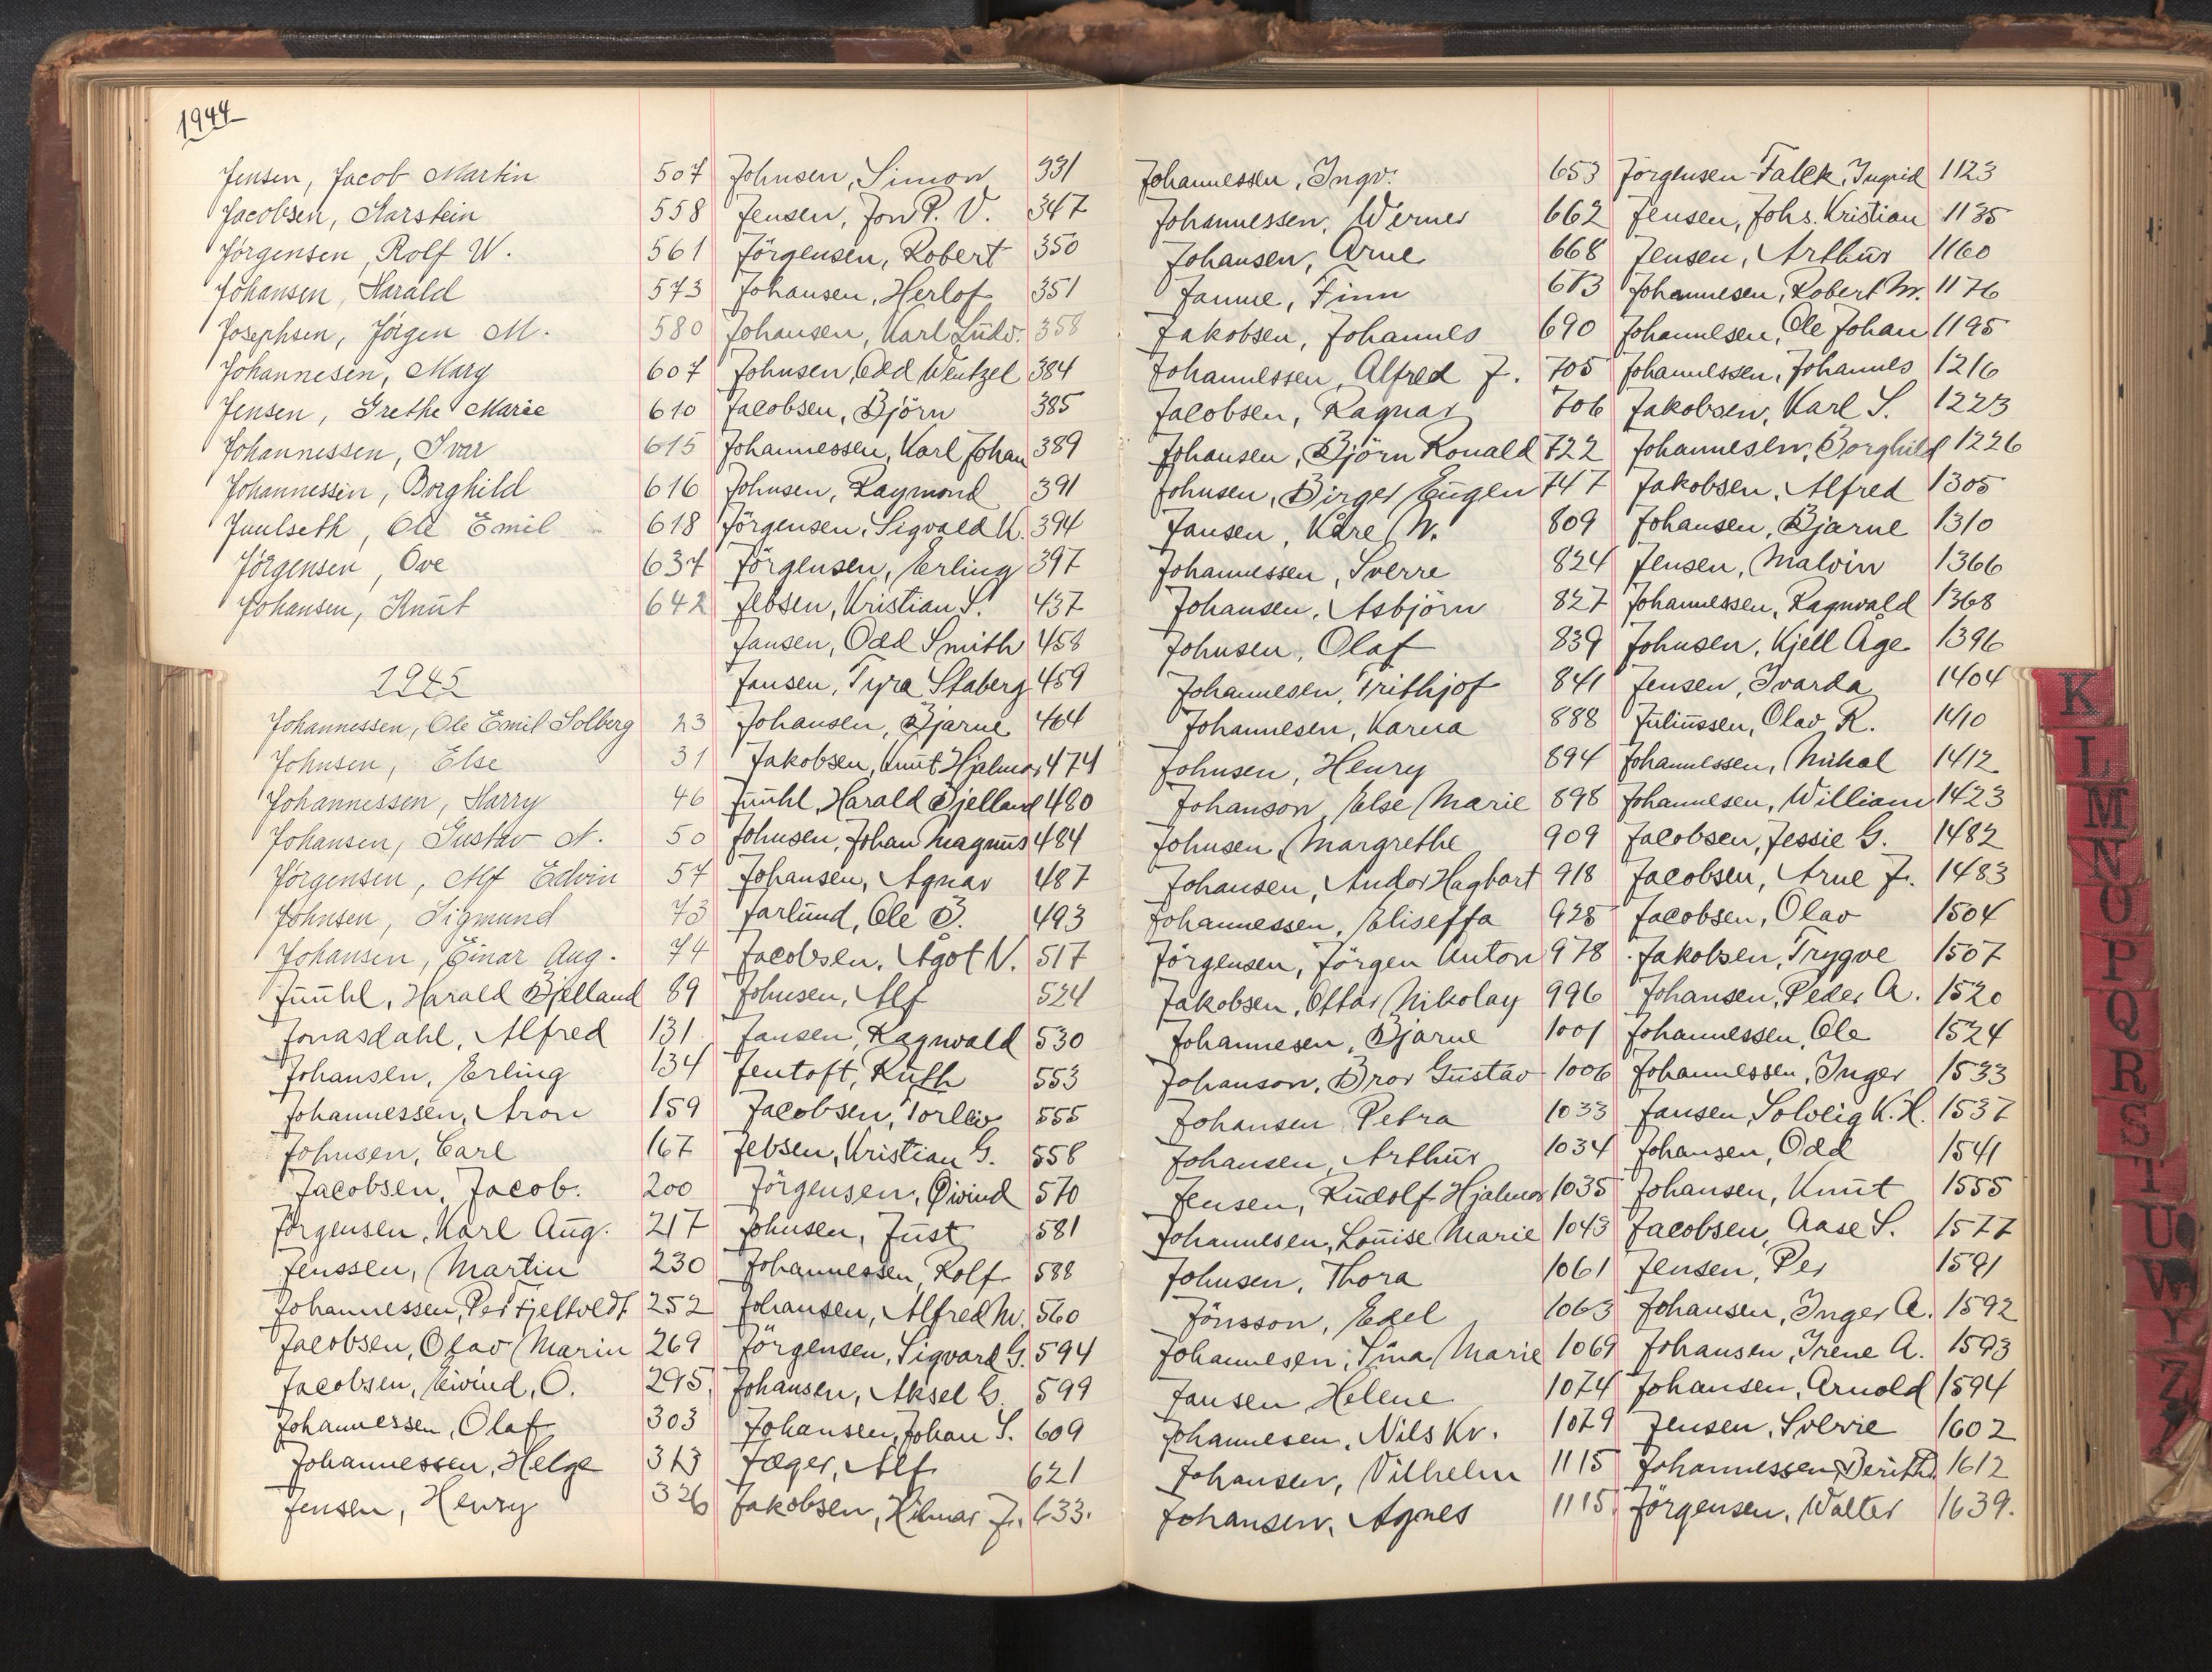 1944
Jensen, Jacob Martin 507
Jacobsen, Karstein 558
Jörgensen, Rolf W. 561
Johansen, Harald 573
Josephsen, Jörgen M. 580
Johannesen, Mary 607
Jensen, Grethe Marie 610
Johannessen, Ivar 615
Johannessen, Borghild 616
Juulseth, Ole Emil 618
Jörgensen, Ove 637
Johansen, Knut 642
1945
Johannessen, Ole Emil Solberg 23
Johnsen, Else 31
Johannessen, Harry 46
Johansen, Gustav N. 50
Jörgensen, Alf Edvin 57
Johnsen, Sigmund 73
Johansen, Einar Aug. 74
Juuhl, Harald Bjelland 89
Jonasdahl, Alfred 131
Johansen, Erling 134
Johannessen, Aron 159
Johnsen, Carl 167
Jacobsen, Jacob. 200
Jörgensen, Karl Aug. 217
Jenssen, Martin 230
Johannessen, Per Fjeltvedt 252
Jacobsen, Olav Marin 269
Jacobsen, Eivind, O. 295
Johannessen, Olaf 303
Johannessen, Helge 313
Jensen, Henry 326
Johnsen, Simon 331
Jensen, Jon P. V. 347
Jörgensen, Robert 350
Johansen, Herlof 351
Johansen, Karl Ludv. 358
Johnsen, Odd Wentzel 384
Jacobsen, Björn 385
Johannessen, Karl Johan 389
Johnsen, Raymond 391
Jörgensen, Sigvald K. 394
Jörgensen, Erling 397
Jebsen, Kristian S. 437
Jansen, Odd Smith 458
Jansen, Tyra Staberg 459
Johansen, Bjarne 464
Jakobsen, Knut Hjalmar 474
Juuhl, Harald Bjelland 480
Johnsen, Johan Magnus 484
Johansen, Agnar 487
Jarlund, Ole B. 493
Jacobsen, Ågot N. 517
Johnsen, Alf 524
Jansen, Ragnvald 530
Jentoft, Ruth 553
Jacobsen, Torleiv 555
Jebsen, Kristian G. 558
Jörgensen, Øivind 570
Johnsen, Just 581
Johannessen, Rolf 588
Johansen, Alfred M. 560
Jörgensen, Sigvard G. 594
Johansen, Aksel G. 599
Johansen, Johan S. 609
Jæger, Alf 621
Jakobsen, Hilmar J. 633.
Johannessen, Ingv. 653
Johannessen, Werner 662
Johansen, Arne 668
Janne, Finn 673
Jakobsen, Johannes 690
Johannessen, Alfred J. 705
Jacobsen, Ragnar 706
Johansen, Björn Ronald 722
Johnsen, Birger Eugen 747
Jansen, Kåre M. 809
Johannessen, Sverre 824
Johansen, Asbjörn 827
Johnsen, Olaf 839
Johannesen, Frithjof 841
Johannesen, Karna 888
Johnsen, Henry 894
Johanson, Else Marie 898
Johnsen, Margrethe 909
Johansen, Andor Hagbart 918
Johannessen, Eliseffa 925
Jörgensen, Jörgen Anton 978
Jakobsen, Ottar Nikolay 996
Johannesen, Bjarne 1001
Johanson, Bror Gustav 1006
Johansen Petra 1033
Johansen, Arthur 1034
Jensen, Rudolf Hjalmar 1035
Johannesen, Louise Marie 1043
Johnsen, Thora 1061
Jönsson, Edel 1063
Johannesen, Sina Marie 1069
Jansen Helene 1074
Johannesen, Nils Kr. 1079
Johansen, Vilhelm 1115
Johansen, Agnes 1115.
Jörgensen-Falck, Ingrid 1123
Jensen, Johs. Kristian 1135
Jensen, Arthur 1160
Johannesen, Robert M. 1176
Johannesen, Ole Johan 1195
Johannessen, Johannes 1216
Jakobsen, Karl S. 1223
Johannesen, Borghild 1226
Jakobsen, Alfred 1305
Johansen, Bjarne 1310
Jensen, Malvin 1366
Johannessen, Ragnvald 1368
Johnsen, Kjell Åge 1396
Jensen, Ivarda 1404
Juliussen, Olav R. 1410
Johannessen, Mikal 1412
Johannesen, William 1423
Jacobsen, Jessie G. 1482
Jacobsen, Arne J. 1483
Jacobsen, Olav 1504
Jakobsen, Trygve 1507
Johansen, Peder A. 1520
Johannessen, Ole 1524
Johannessen, Inger 1533
Jansen, Solveig K. H. 1537
Johansen, Odd 1541
Johansen, Knut 1555
Jacobsen, Aase S. 1577
Jensen, Per 1591
Johansen, Inger A. 1592
Johansen, Irene A. 1593
Johansen, Arnold 1594
Jensen, Solvie 1602
Johannessen, Berith 1612
Jörgensen, Walter 1639.
K
L
M
N
O
P
Q
R
S
T
U
W
Y
Z